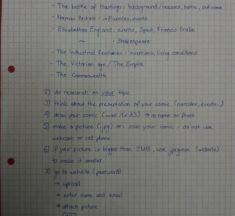 - The battle of Hastings: background/reasons, battle, outcome
- Norman Britain: influences, events
- Elizabethan England: events, Spain, Francis Drake
- Shakespeare
- The Industrial Revolution: inventions, living conditions
- The Victorian age / The Empire
- The Commonwealth
1) do research on your topic
2) think about the presentation of your comic (narrator, events...)
3) draw your comic → name on front
4) make a picture (.jpg) or scan your comic - do not use webcam or cell phone
6) if your picture is bigger than 2MB, use (website) to make it smaller
7) go to website (password)
→ upload
→ enter name and email
→ attach picture